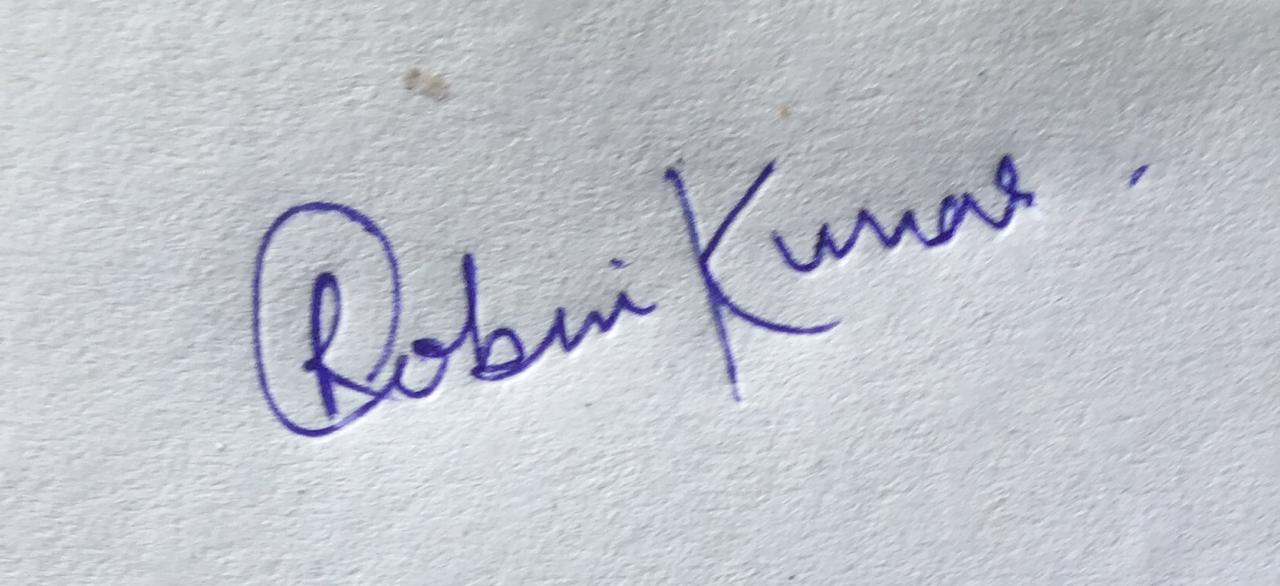 Robin Kumar.